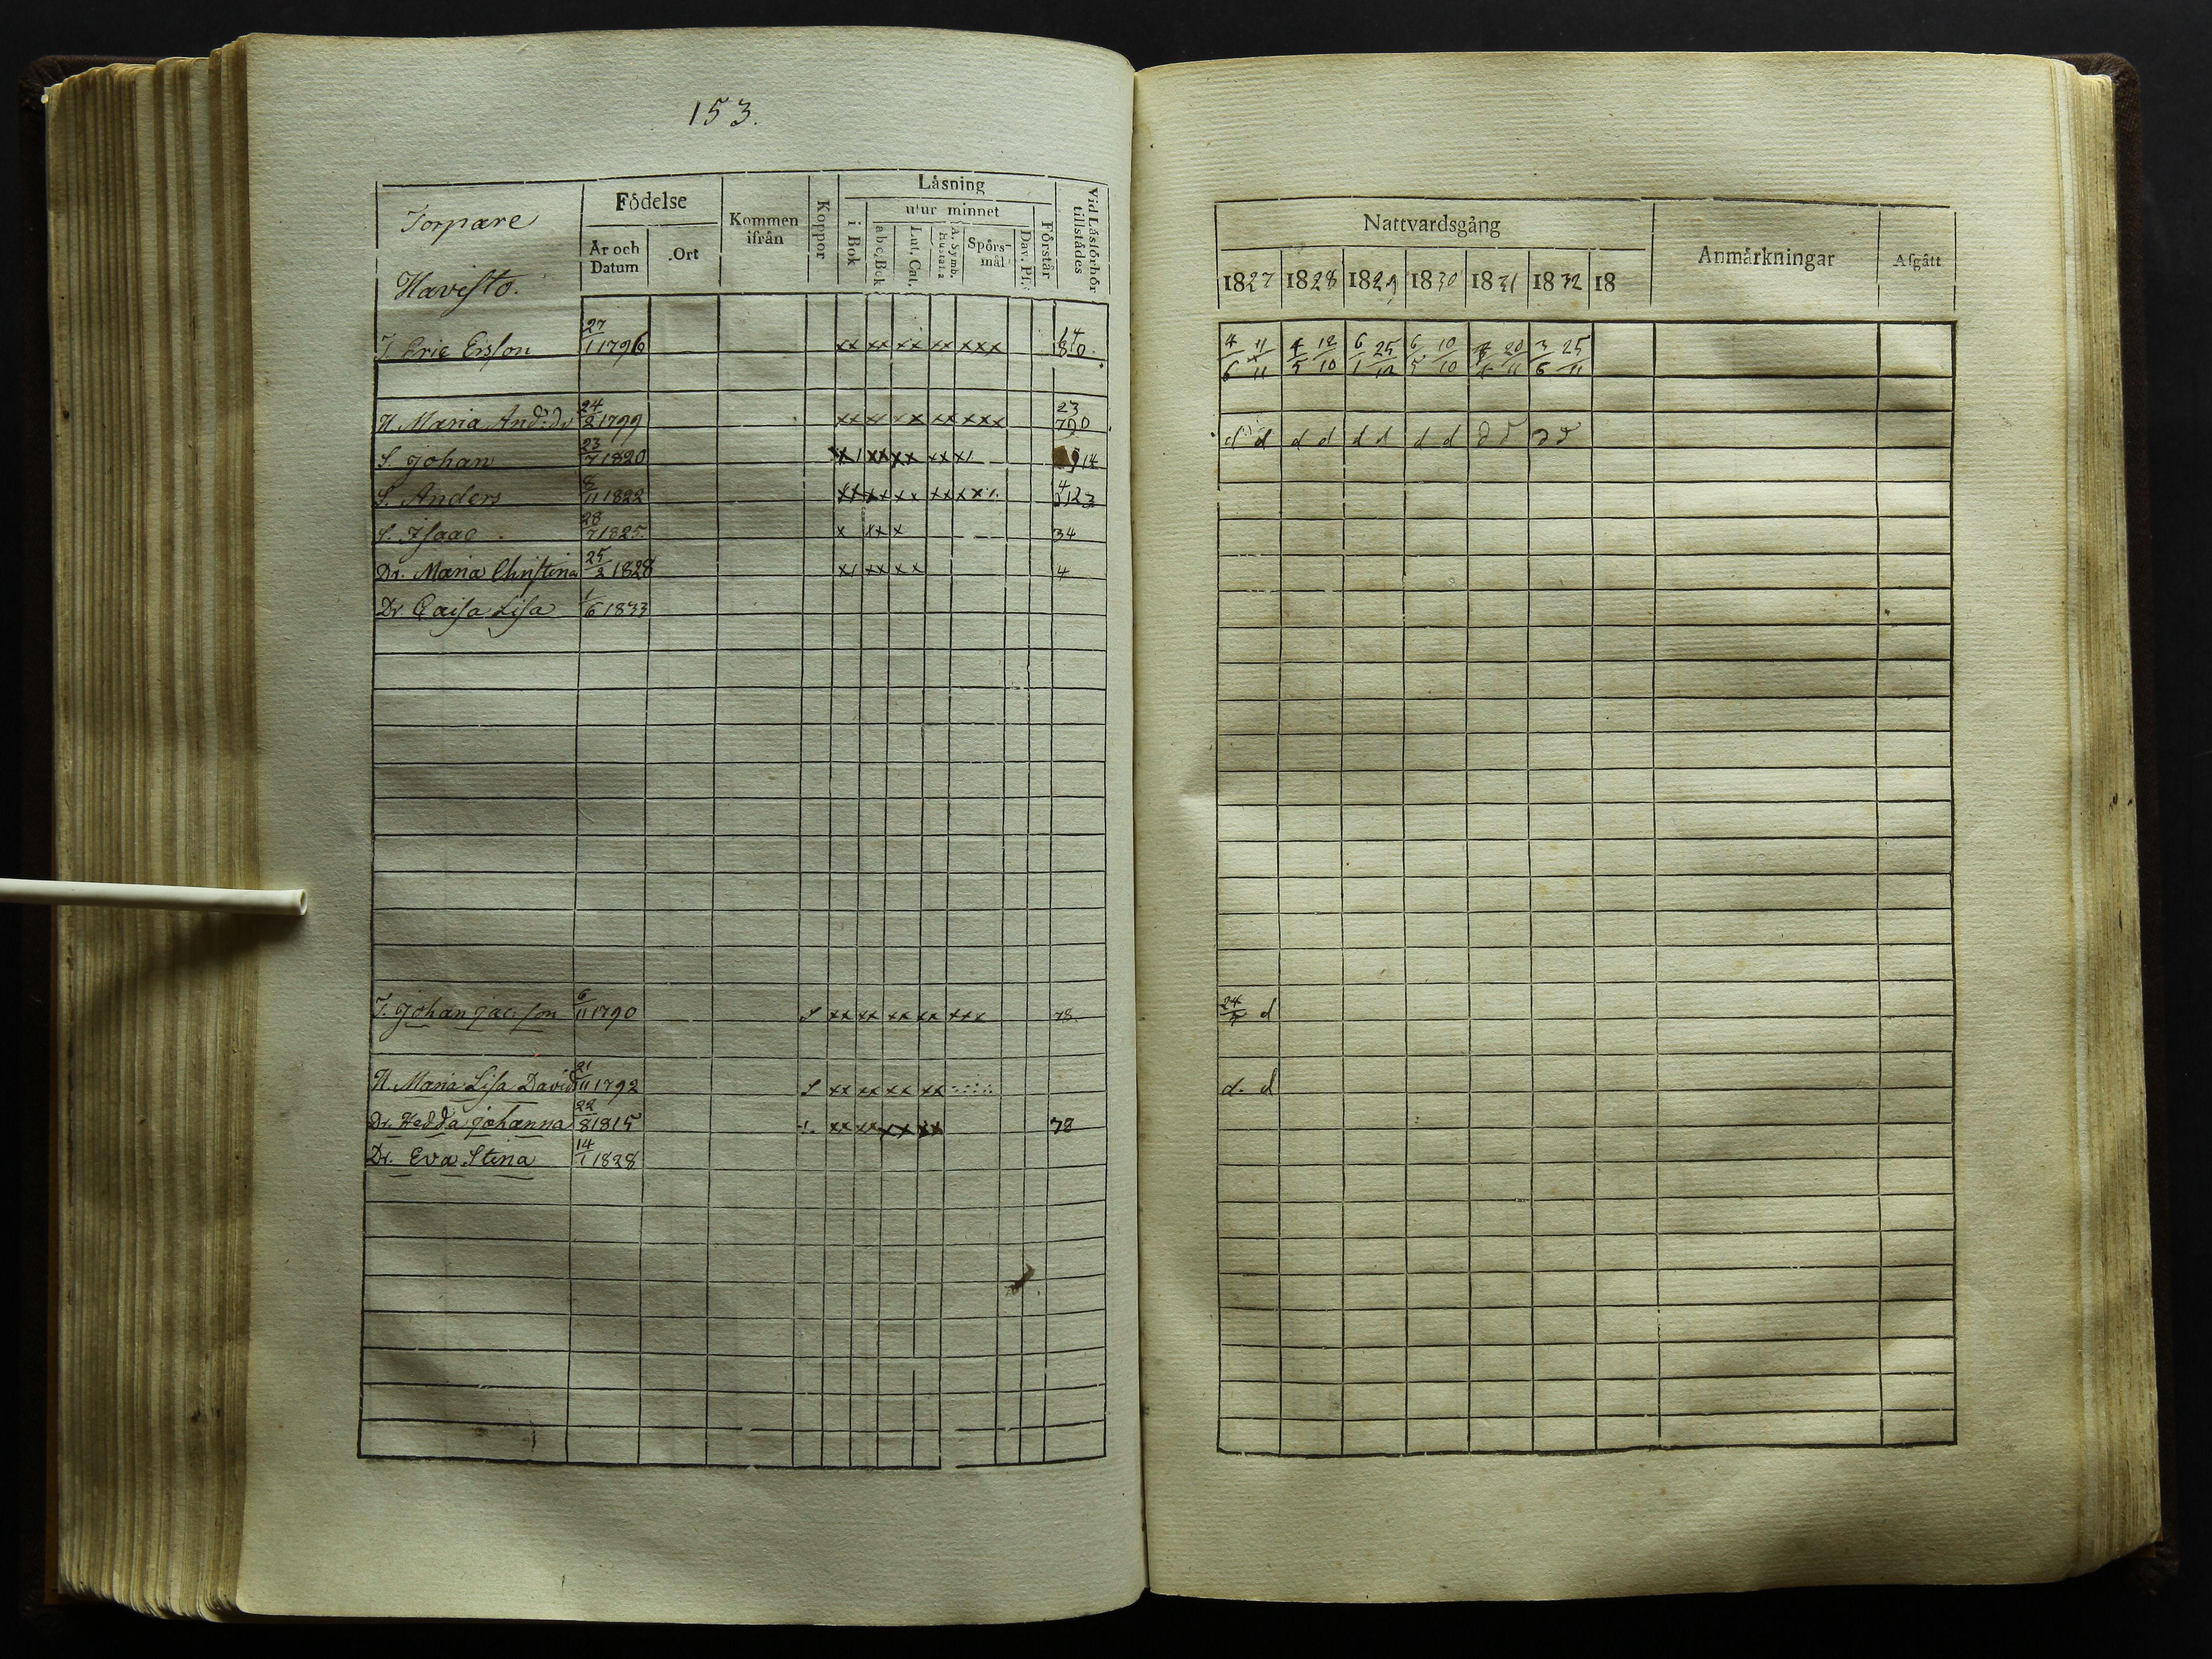 153.
Torpare
Havisto.
Födelse
År och Datum
Ort
Kommen ifrån
Koppor
Läsning
i Bok
utur minnet
abc, Bok
Lut. Cat.
A. Symb. Hustafla
Spörsmål
Dav. Ps.
Förstår
Vid Läsförhör tillstädes
T. Eric Ericsson 27/1 1796 xx xx xx xx xxx
H. Maria And:dr 24/2 1799 xx xx xx xx xxx 23 790
S. Johan 23/7 1820
S. Anders 8/11 1822
S. Isaac 28/7 1825 x xx x 34
Dr. Maria Christina 25/2 1828 x/ xx xx 4
Dr. Caisa Lisa 1/6 1833
T. Johan Jacsson 6/11 1790 S xx xx xx xx xxx 78
H. Maria Lisa David 21/11 1792 S xx xx xx xx
Dr. Hedda Johanna 22/8 1815 xx xx xx xx 78
Dr. Eva Stina 14/1 1828
Nattvardsgång
Anmärkningar
Afgått
1827 1828 1829 1830 1831 1832 18
4/6 11/11 4/5 12/10 6/1 25/10 6/5 10/10 20/11 3/6 25/11
d d d d d d d d d d d d
24/5 d
d. d